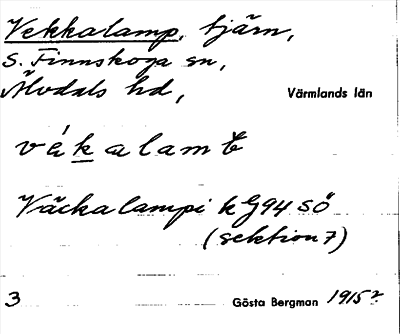 Vekkalamp, tjärn,
S. Finnskoga sn,
Älvdals hd,
Värmlands län
vèkalamt
Väckalampi kG94 SÖ
(sektion 7)
3
Gösta Bergman 1915?